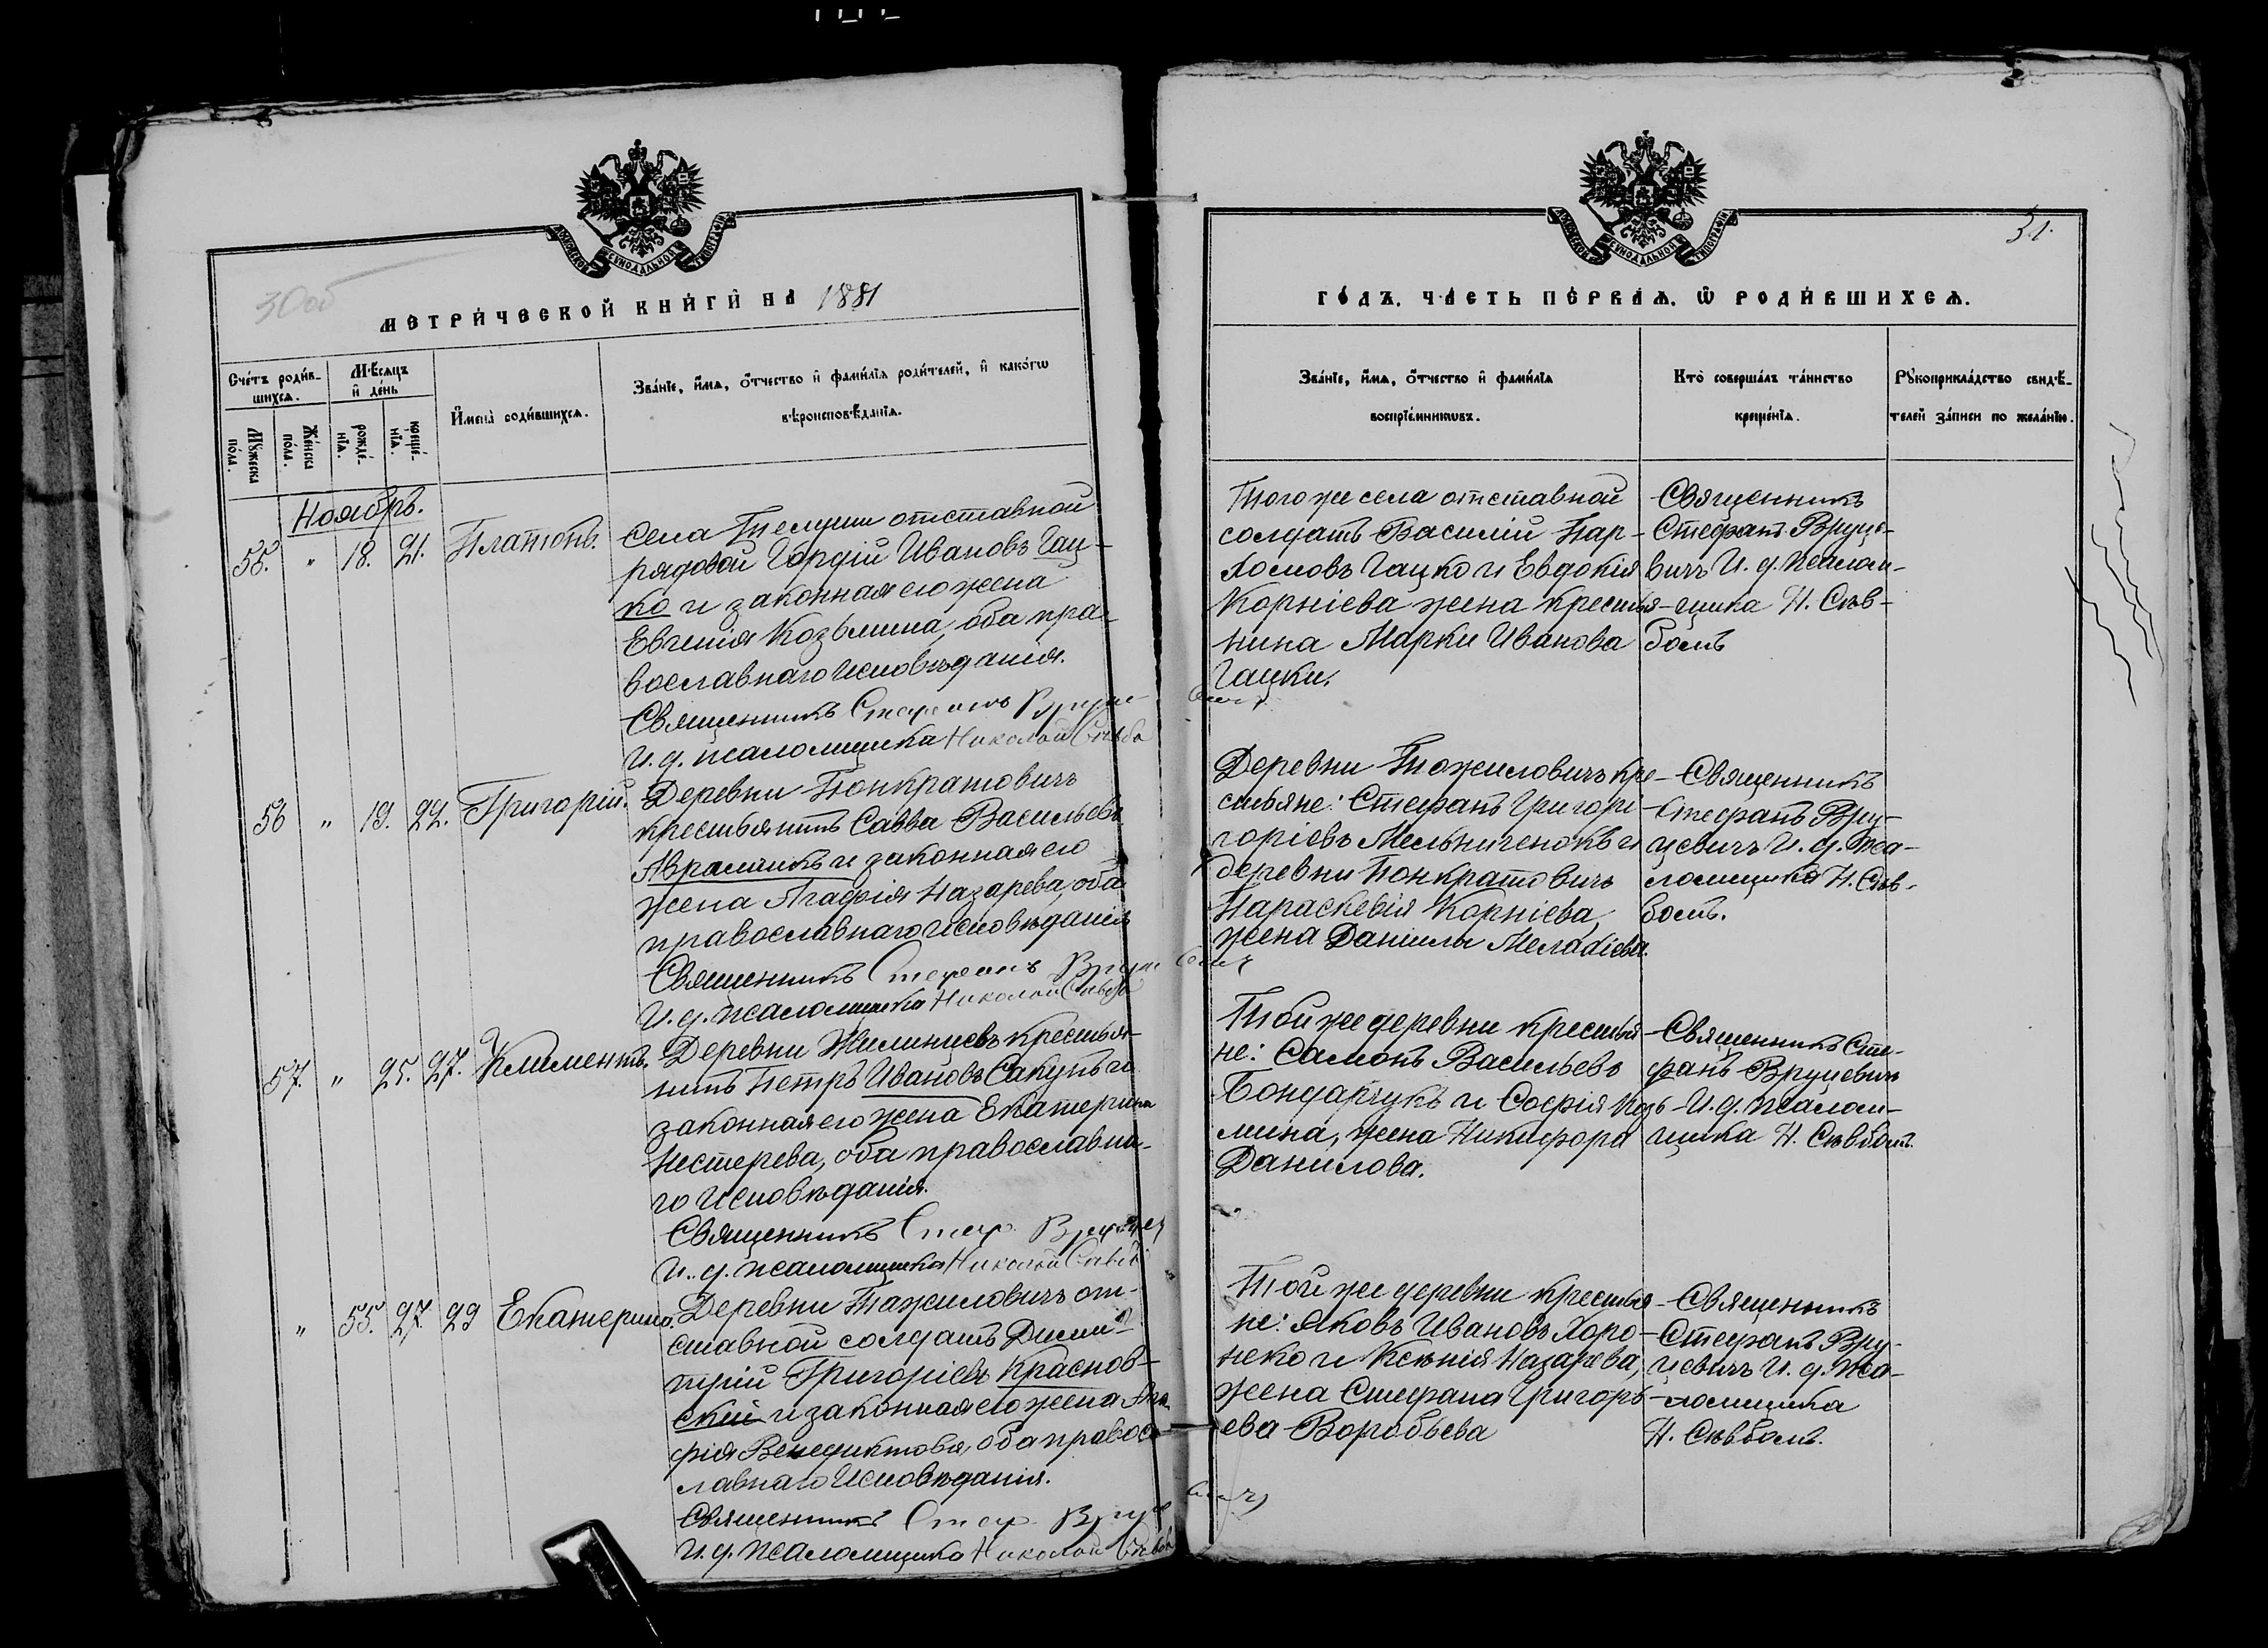 30об
МЕТРИ́ЧЕСКОЙ КНИ́ГИ НА 1881
Сче́тъ роди́в-
шихсѧ.
Мѣ́сѧцъ
и҆ де́нь
И҆мена̀ роди́вшихсѧ.
Зва́нїе, и҆́мѧ, ѻ҆́тчество и҆ фами́лїѧ роди́телей, и҆ како́гѡ
вѣроисповѣ́данїѧ.
Мꙋ́жеска
по́ла.
Же́нска
по́ла.
рожде́-
нїѧ.
креще́-
нїѧ.
Ноябрь.
55. " 18. 21. Платонъ.
Села Телуши отставной
рядовой Гордій Ивановъ Гац-
ко и законная его жена
Евгенія Козьмина, оба пра-
вославнаго исповѣданія.
Священникъ Стефанъ Вруце-
И. д. псаломщика Николай
56 " 19. 22. Григорій.
Деревни Понкратовичъ
крестьянинъ Савва Васильевъ
Аврамчикъ и законная его
жена Агафія Назарева, оба
православнаго исповѣданія
Священникъ Стефанъ Вруцевичъ
И. д. псаломщика Николай
57. " 25. 27. Климентъ.
Деревни Жилинцевъ крестья-
нинъ Петръ Ивановъ Сакунъ и
законная его жена Екатерина
Нестерева, оба православна-
го исповѣданія.
Священникъ Стеф. Вруцевич
И. д. псаломщика Николай
" 55. 27. 29 Екатерина.
Деревни Тажиловичъ от-
ставной солдатъ Дими-
трій Григоріевъ Краснов-
скій и законная его жена Ага-
фія Венедиктова, оба правос-
лавнаго исповѣданія.
Священникъ Стеф. Вруце
И. д. псаломщика Николай
31.
ГО́ДЪ. ЧА́СТЬ ПЕ́РВАѦ. Ѡ҆ РОДИ́ВШИХСѦ.
Зва́нїе, и҆́мѧ, ѻ҆́тчество и҆ фами́лїѧ
воспрїе́мникѡвъ.
Кто̀ соверша́лъ та́инство
креще́нїѧ.
Рꙋкоприкла́дство свидѣ́-
телей за́писи по жела́нїю.
Того же села отставной
солдатъ Василій Пар-
хомовъ Гацко и Евдокія
Корніева жена крестья-
нина Марки Иванова
Гацки.
Священникъ
Стефанъ Вруце-
вичъ И. д. псалом-
щика Н. Сѣв-
бомъ
Деревни Тожиловичъ кре-
стьяне: Стефанъ Григори
горіевъ Мельниченокъ и
деревни Понкратовичъ
Параскевія Корніева,
жена Даніила
Священникъ
Стефанъ Вру-
цевичъ И. д. пса-
ломщика Н. Сѣв-
бомъ.
Той же деревни крестья-
не: Самонъ Васильевъ
Бондарчукъ и Софія Козь-
мина, жена Никифора
Данилова.
Священникъ Сте-
фанъ Вруцевичъ
И. д. псалом-
щика Н. Сѣвбомъ.
Той же деревни крестья-
не: Яковъ Ивановъ Хоро-
неко и Ксенія Назарева,
жена Стефана Григорь-
ева Воробьева
Священникъ
Стефанъ Вру-
цевичъ И. д. пса-
ломщика
Н. Сѣвбомъ.